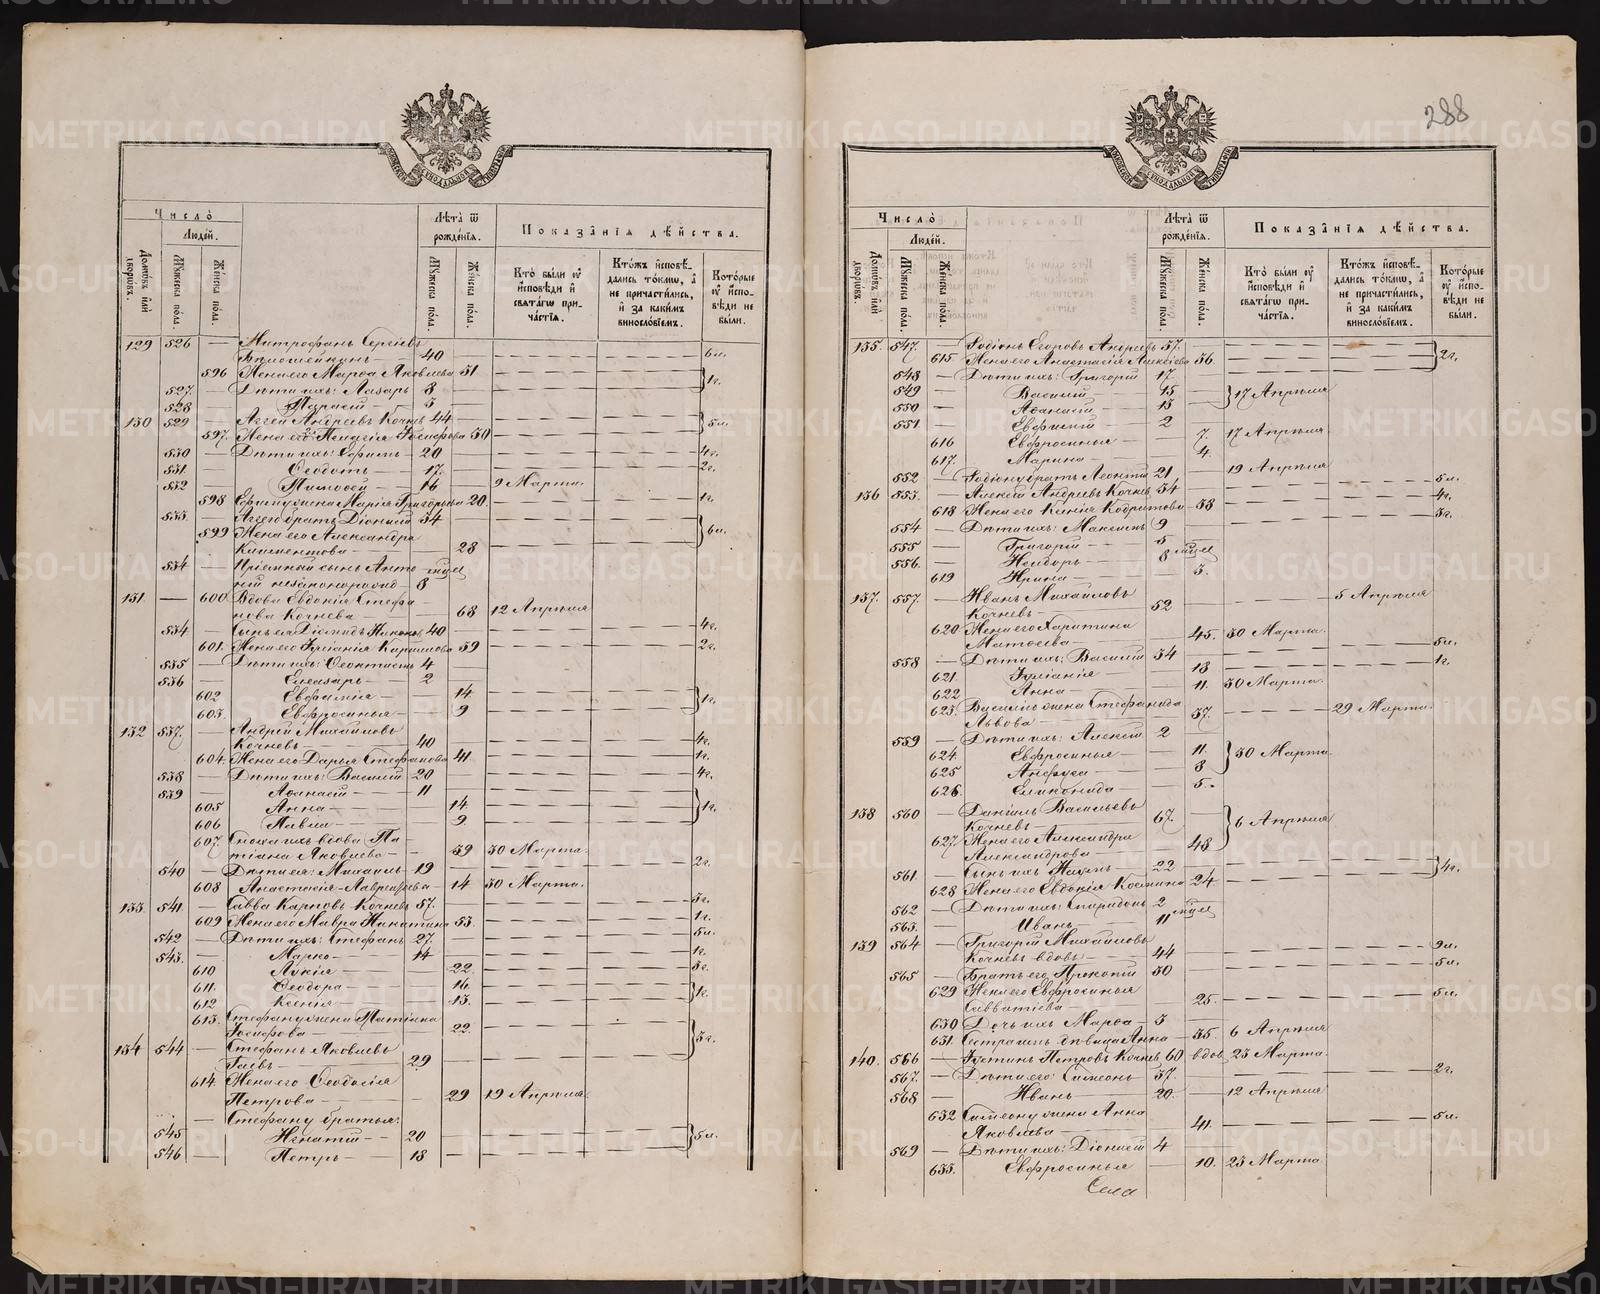 288
Число̀
Людéй.
Домóвъ или̂ дворóвъ.
Мꙋжеска пóла.
Жéнска пóла.
Лѣта̀ ѿ рождéнїѧ.
Мꙋжеска пóла.
Жéнска пóла.
Показа̂нїѧ дѣ́йства.
Кто̀ бы́ли ᲂу҆ и҆сповѣди и҆ свѧта́гѡ при-ча́стїѧ.
Кто́жъ и҆сповѣ́-дались то́кмѡ, а҆ не причасти́лись, и҆ за каки́мъ винослóвїемъ.
Кото́рые ᲂу҆ и҆спо-вѣди не бы́ли.
129 526 — Митрофанъ Сергѣевъ
40 6 л.
596 Жена его Марѳа Яковлева 51
527. — Дѣти ихъ: Лазарь 8 1 г.
528 — 5
130 529 — Аггей Андреевъ Кочневъ 44 5 л.
597. Жена его Пелагія Іосифова 50
530 — Дѣти ихъ: Ефимъ — 20 4 г.
531. — Ѳеодотъ — 17. 2 г.
532 Тимоѳей — 16 — 9 Марта.
598 Ефиму жена Марія Григорьева 20. 1 г.
533. Аггею братъ Діонисій 34
599 Жена его Александра 6 л.
Климентова — 28
534 — Пріемный сынъ Анто- мцев
ній незаконорожд — 8
131. — 600 Вдова Евдокія Стефа-
нова Кочнева — 68 12 Апрѣля
534 — Сынъ ея Діомидъ 40 4 г.
601. Жена его Іуліанія Кирилова 39 2 г.
535 — Дѣти ихъ: Ѳеоктистъ 4
536 Елеазаръ — 2
602 Евфимія — 14
603. Евфросинья — 9 1 г.
132 537. — Андрей Михайловъ
Кочневъ — 40 4 г.
604. Жена его Дарья Стефанова 41. 1 г.
538 — Дѣти ихъ: Василій 20 4 г.
539 — Аѳанасій — 11
605 Анна — 14. 1 г.
606 Павла — 9
607. Сноха ихъ вдова Та-
тіана Яковлева — 39 30 Марта.
540 — Дѣти ея: Михаилъ 19 2 г.
608 Анастасія Лаврентьева — 14 30 Марта.
133 541. — Савва Карповъ Кочневъ 57. 3 г.
609 Жена его Мавра Никитина 53. 1 г.
542 — Дѣти ихъ: Стефанъ 27. 5 л.
543. — Марко — 14 1 г.
610 Лукія 22. 3 г.
611. Ѳеодора — 16.
612 Ксенія — 13. 1 г.
613. Стефану жена Татіана
Іосифова — 22. 3 г.
134 544 — Стефанъ Яковлевъ
29
614. Жена его Ѳеодосія
Петрова — 29 19 Апрѣля.
— Стефану братья:
545 Игнатій — 20 5 л.
546 — Петръ — 18
Число̀
Людéй.
Домóвъ или̂ дворóвъ.
Мꙋжеска пóла.
Жéнска пóла.
Лѣта̀ ѿ рождéнїѧ.
Мꙋжеска пóла.
Жéнска пóла.
Показа̂нїѧ дѣ́йства.
Кто̀ бы́ли ᲂу҆ и҆сповѣди и҆ свѧта́гѡ при-ча́стїѧ.
Кто́жъ и҆сповѣ́-дались то́кмѡ, а҆ не причасти́лись, и҆ за каки́мъ винослóвїемъ.
Кото́рые ᲂу҆ и҆спо-вѣди не бы́ли.
135. 547. — Родіонъ Егоровъ 57.
615. Жена его Анастасія Алексіева 56. 2 г.
548 — Дѣти ихъ: Григорій 17.
549 — Василій — 15 17 Апрѣля
550 — Аѳанасій — 13
551 — Евфимій — 2
616 Евфросинья — 7. 17 Апрѣля
617. Марина — 4.
552 — Родіону братъ Леонтій 21 19 Апрѣля 5 л.
136 553. — Алексій Андреевъ Кочневъ 54 4 г.
618 Жена его Ксенія Кодратова — 58 3 г.
554 — Дѣти ихъ: Максимъ 9
555 — Григорій — 5
556. — Исидоръ — 8 мцев
619 Ирина — 3.
137. 557. — Иванъ Михайловъ 5 Апрѣля
Кочневъ — 52
620 Жена его Харитина
Матѳеева — 45. 30 Марта.
558 — Дѣти ихъ; Василій 34 5 л.
621. Іуліанія — 18 1 г.
622 Анна — 11. 30 Марта.
623. Василію жена Стефанида
Львова — 37. 29 Марта.
559 — Дѣти ихъ: Алексій 2
624. Евфросинья — 11. 30 Марта.
625 Анфуса — 8
626. Еликонида — 5.
138 560 — Даніилъ Васильевъ
Кочневъ — 67. 6 Апрѣля
627. Жена его Александра
Александрова — 48
561. — Сынъ ихъ 22 4 г.
628 Жена его Евдокія Козмина 24
562 — Дѣти ихъ: Спиридонъ 2
563. — Иванъ 11 мцев
139 564 — Григорій Михайловъ
Кочневъ вдовъ — 44 9 л.
565 — Братъ его Прокопій 30 5 л.
629 Жена его Евфросинья
Савватіева 25. 5 л.
630 Дочь ихъ Марѳа — 3
631. Сестра ихъ дѣвица Анна — 35 6 Апрѣля
140. 566 — Іустинъ Петровъ Кочневъ 60 вдов. 23 Марта.
567. — Дѣти его: Симеонъ — 37. 2 г.
568 — Иванъ — 20. 12 Апрѣля
632 Симеону жена Анна
Яковлева — 41. 5 л.
569 — Дѣти ихъ: Діонисій 4
633. Евфросинья — 10. 23 Марта
Села